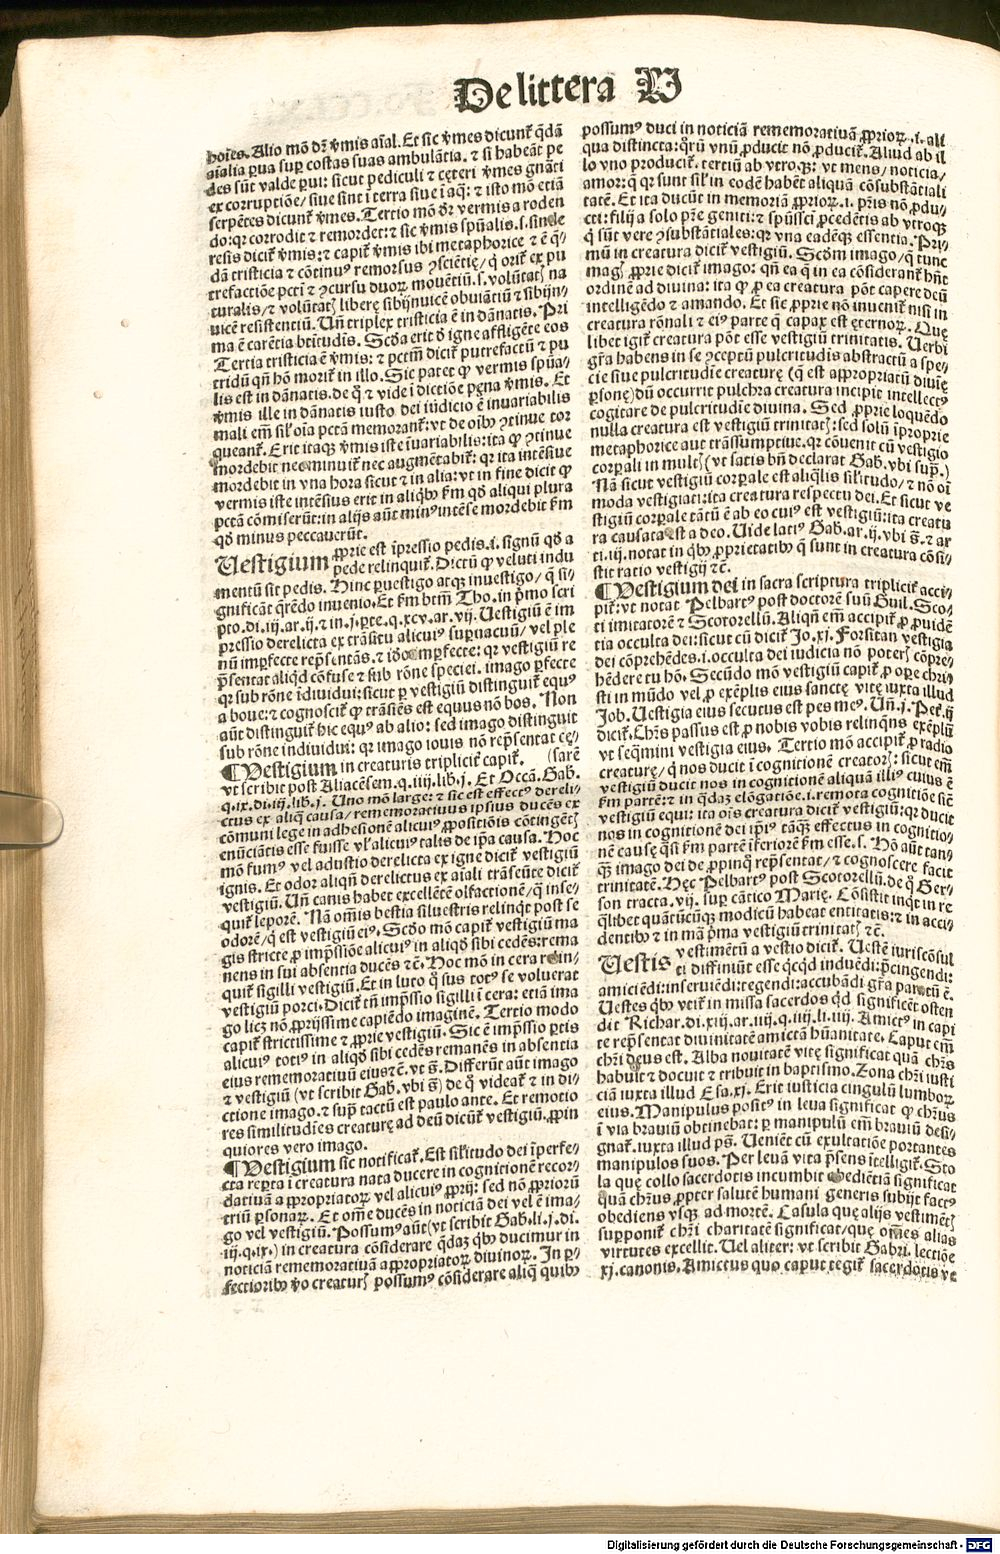 De littera V
hoīes. Alio mō dr̄ v̓mis aīal. Et sic v̓mes dicunt᷑ q̄dā
aīalia ꝑua suꝑ costas suas ambulātia. ⁊ si habeāt pe
des sūt valde ꝑui: sicut pediculi ⁊ cęteri v̓mes gnāti
ex corruptiōe/ siue sint ī terra siue ī aq̄: ⁊ isto mō etiā
serpētes dicunt᷑ v̓mes. Tertio mō dr̄ vermis a roden
do: qr corrodit ⁊ remordet: ⁊ sic v̓mis spūalis. s. sinde
resis dicit᷑ v̓mis: ⁊ capit᷑ v̓mis ibi metaphorice ⁊ ē q̄/
dā tristicia ⁊ cōtinuꝰ remorsus ꝯsciētię/ q̄ orit᷑ ex pu
trefactiōe pctī ⁊ ꝯcursu duoꝝ mouētiū. s. volūtatꝭ na
turalis/ ⁊ volūtatꝭ liberę sibijnuicē obuiātiū ⁊ sibijn/
uicē resistentiū. Uñ triplex tristicia ē in dānatis. Pri
ma ē carētia btitudīs. Scd̄a erit d̓ igne affligēte eos
Tertia tristicia ē v̓mis: ⁊ pctm̄ dicit᷑ putrefactū ⁊ pu
tridū qn̄ hō morit᷑ in illo. Sic patet qꝫ vermis spūa/
lis est in dānatis. de q̊ ⁊ vide ī dictiōe pęna v̓mis. Et
v̓mis ille in dānatis iusto dei iudicio ē inuariabilis
mali em̄ sil̓ oīa pctā memorant᷑: vt de oībꝰ ꝯtinue tor
queant᷑. Erit itaqꝫ v̓mis iste īuariabilis: ita qꝫ ꝯtinue
mordebit nec minuit᷑ nec augmētabit᷑: qr ita intēsiue
mordebit in vna hora sicut ⁊ in alia: vt in fine dicit qꝫ
vermis iste intēsius erit in aliqbꝰ ẜm qd̓ aliqui plura
pctā cōmiserūt: in alijs aūt minꝰ intēse mordebit ẜm
qd̓ minus peccauerūt.
Uestigium ꝓprie est īpressio pedis. i. signū qd̓ a
pede relinquit᷑. Dictū qꝫ veluti indu
mentū sit pedis. Hinc ꝑuestigo atqꝫ inuestigo/ q̄ si/
gnificāt q̄rēdo inuenio. Et ẜm btm̄ Tho. in p̓mo scri
pto. di. iij. ar. ij. ⁊ in. j. ꝑte. q. xcv. ar. vij. Uestigiū ē im
pressio derelicta ex trāsitu alicuiꝰ suꝑuacuū/ vel ple
nū imꝑfecte rep̄sentās. ⁊ iō imperfecte: qr vestigiū re
p̄sentat aliqd cōfuse ⁊ sub rōne speciei. imago ꝑfecte
qr sub rōne īdiuidui: sicut ꝑ vestigiū distinguit᷑ equꝰ
a boue: ⁊ cognoscit᷑ qꝫ trāsiēs est equus nō bos. Non
aūt distinguit᷑ hic equꝰ ab alio: sed imago distinguit
sub rōne indiuidui: qr imago iouis nō rep̄sentat cę/
¶ Uestigium in creaturis tripliciť capit᷑. (sarē
vt scribit post Aliacēsem. q. iiij. lib. j. Et Occā. Gab.
q. ix. di. iij. lib. j. Uno mō large: ⁊ sic est effectꝰ dereli/
ctus ex aliq̄ causa/ rememoratiuus ipsius ducēs ex
cōmuni lege in adhesionē alicuiꝰ ꝓpositiōis cōtingētꝭ
enūciātis esse fuisse vl̓ alicuiꝰ talis de ip̄a causa. Hoc
mō fumꝰ vel adustio derelicta ex igne dicit᷑ vestigiū
ignis. Et odor aliqn̄ derelictus ex aīali trāseūte dicit᷑
vestigiū. Uñ canis habet excellētē olfactionē/ q̄ inse/
quit᷑ leporē. Nā om̄is bestia siluestris relinqt post se
odorē/ q̄ est vestigiū eiꝰ. Scd̄o mō capit᷑ vestigiū ma
gis stricte ꝓ imp̄ssiōe alicuiꝰ in aliqd̓ sibi cedēs: rema
nens in sui absentia ducēs ⁊ē. Hoc mō in cera rein/
quit᷑ sigilli vestigiū. Et in luto q̊ sus totꝰ se voluerat
vestigiū porci. Dicit᷑ tn̄ imp̄ssio sigilli ī cera: etiā ima
go licꝫ nō ꝓprijssime capiēdo imaginē. Tertio modo
capit᷑ strictissime ⁊ ꝓprie vestigiū. Sic ē imp̄ssio ꝑtis
alicuiꝰ totiꝰ in aliqd̓ sibi cedēs remanēs in absentia
eius rememoratiuū eius ⁊ē. vt s̄. Differūt aūt imago
⁊ vestigiū (vt scribit Gab. vbi s̄) de q̊ videat᷑ ⁊ in di/
ctione imago. ⁊ supͣ tactū est paulo ante. Et remotio
res similitudīes creaturę ad deū dicūt᷑ vestigiū. ꝓpin
quiores vero imago.
¶ Uestigium sic notificat᷑. Est sil̓itudo dei īperfe/
cta reꝑta ī creatura nata ducere in cognitionē recor/
datiuā a ꝓpropriatoꝝ vel alicuiꝰ ꝓprij: sed nō ꝓprioꝝ
triū ꝑsonaꝝ. Et om̄e ducēs in noticiā dei vel ē ima/
go vel vestigiū. Possumꝰ aūt (vt scribit Gab. li. j. di.
iij. q. ix.) in creatura cōsiderare q̄daꝫ qbꝰ ducimur in
noticiā rememoratiuā appropriatoꝝ diuinoꝝ. In ꝑ/
fectioribꝰ v̓o creaturꝭ possumꝰ cōsiderare aliq̄ quibꝰ
possumꝰ duci in noticiā rememoratiuā ꝓprioꝝ. i. ali
qua distincta: qrū vnū ꝓducit nō ꝓducit᷑. Aliud ab il
lo vno producit᷑. tertiū ab vtroqꝫ: vt mens/ noticia/
amor: q̄ qr sunt sil̓ in eodē habēt aliquā cōsubstātiali
tatē. Et ita ducūt in memoriā ꝓprioꝝ. i. pr̄is nō ꝓdu/
cti: filij a solo pr̄e geniti: ⁊ spūssci ꝓcedētis ab vtroqꝫ
q̄ sūt vere ꝯsubstātiales: qr vna eadēqꝫ essentia. Pri/
mū in creatura dicit᷑ vestigiū. Scd̓m imago/ q̄ tunc
magꝭ ꝓprie dicit᷑ imago: qn̄ ea q̄ in ea cōsiderant᷑ hn̄t
ordinē ad diuina: ita qꝫ ꝓ ea creatura pōt capere deū
intelligēdo ⁊ amando. Et sic ꝓprie nō inuenit᷑ nisi in
creatura rōnali ⁊ eiꝰ parte q̄ capax est ęternoꝝ. Quę
libet igit᷑ creatura pōt esse vestigiū trinitatis. Uerbi
gr̄a habens in se ꝯceptū pulcritudīs abstractū a spe/
cie siue pulcritudīe creaturę (q̄ est appropriatū diuīę
ꝑsonę) dū occurrit pulchra creatura incipit intellectꝰ
cogitare de pulcritudīe diuina. Sed ꝓprie loquēdo
nulla creatura est vestigiū trinitatꝭ: sed solū īproprie
metaphorice aut trāssumptiue. qr cōuenit cū vestigio
corꝑali in multꝭ (vt satis bn̄ declarat Gab. vbi supͣ.)
Nā sicut vestigiū corꝑale est aliq̄lis sil̓itudo/ ⁊ nō oī
moda vestigiati: ita creatura respectu dei. Et sicut ve
stigiū corꝑale tātū ē ab eo cuiꝰ est vestigiū: ita creatu
ra causata est a deo. Uide latiꝰ Gab. ar. ij. vbi s̄. ⁊ ar
ti. iij. notat in qbꝰ ꝓprietatibꝰ q̄ sunt in creatura cōsi/
stit ratio vestigij ⁊ē.
¶ Uestigium dei in sacra scriptura tripliciť acci/
pit᷑: vt notat Pelbartꝰ post doctorē suū Guil. Sco/
ti imitatorē ⁊ Scotorellū. Aliqn̄ em̄ accipit᷑ ꝓ ꝓuidē
tia occulta dei: sicut cū dicit᷑ Jo. xj. Forsitan vestigia
dei cōprehēdes. i. occulta dei iudicia nō poterꝭ cōpre/
hēdere tu hō. Secūdo mō vestigiū capit᷑ ꝓ oꝑe chri/
sti in mūdo vel ꝓ exēplis eius sanctę vitę iuxta illud
Job. Uestigia eius secutus est pes meꝰ. Uñ. j. Pet. ij
dicit᷑. Chr̄s passus est ꝓ nobis vobis relinqns exēplū
vt seqmini vestigia eius. Tertio mō accipit᷑ ꝓ radio
creaturę/ q̄ nos ducit ī cognitionē creatorꝭ: sicut em̄
vestigiū ducit nos in cognitionē aliquā illiꝰ cuius ē
ẜm partē: ⁊ in q̄daꝫ elōgatiōe. i. remota cognitiōe sic̄
vestigiū equi: ita oīs creatura dicit᷑ vestigiū: qr ducit
nos in cognitionē dei ip̄iꝰ tāqꝫ effectus in cognitio/
nē causę q̄si ẜm partē īferiorē ẜm esse. s. Hō aūt tan/
qꝫ imago dei de ꝓpinq̊ rep̄sentat/ ⁊ cognoscere facit
trinitatē. Hęc Pelbartꝰ post Scotorellū. de q̊ Ger/
son tracta. vij. suꝑ cātico Marię. Cōsistit inqt in re
q̄libet quātūcūqꝫ modicū habeat entitatis: ⁊ in acci/
dentibꝰ ⁊ in mā p̓ma vestigiū trinitatꝭ ⁊ē.
Uestis vestimētū a vestio dicit᷑. Uestē iuriscōsul
ti diffiniūt esse qcqd induēdi: p̄cingendi:
amiciēdi: inseruiēdi: tegendi: accubādi gr̄a paratū ē.
Uestes qbꝰ vtit᷑ in missa sacerdos qd significēt osten
dit Richar. di. xiij. ar. iiij. q. iiij. li. iiij. Amictꝰ in capi
te rep̄sentat diuinitatē amictā hūanitate. Caput em̄
chr̄i deus est. Alba nouitatē vitę significat quā chr̄s
habuit ⁊ docuit ⁊ tribuit in baptismo. Zona chr̄i iusti
ciā iuxta illud Esa. xj. Erit iusticia cingulū lumboꝝ
eius. Manipulus positꝰ in leua significat qꝫ chr̄us
ī via brauiū obtinebat: ꝑ manipulū em̄ brauiū desi/
gnat᷑. iuxta illud ps̄. Ueniēt cū exultatiōe portantes
manipulos suos. Per leuā vita p̄sens ītelligit᷑. Sto
la quę collo sacerdotis incumbit obediētiā significat
quā chr̄us ꝓpter salutē humani generis subijt factꝰ
obediens vsqꝫ ad mortē. Casula quę alijs vestimētꝭ
supponit᷑ chr̄i charitatē significat/ quę om̄es alias
virtutes excellit. Uel aliter: vt scribit Gabri. lectiōe
xj. canonis. Amictus quo caput tegit᷑ sacerdotis vt
Digitalisierung gefördert durch die Deutsche Forschungsgemeinschaft - DFG